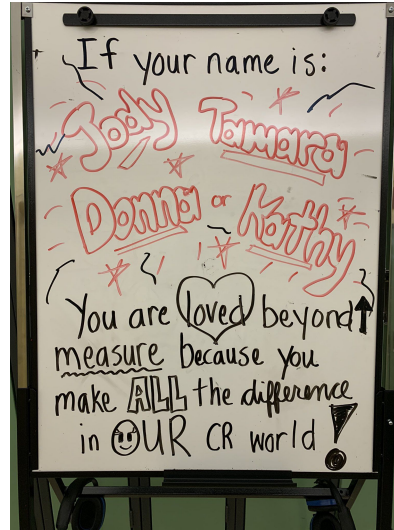 If your name is:
Jody Tamara
Donna or Kathy
You are loved beyond
measure because you
make ALL the difference
in OUR CR world!